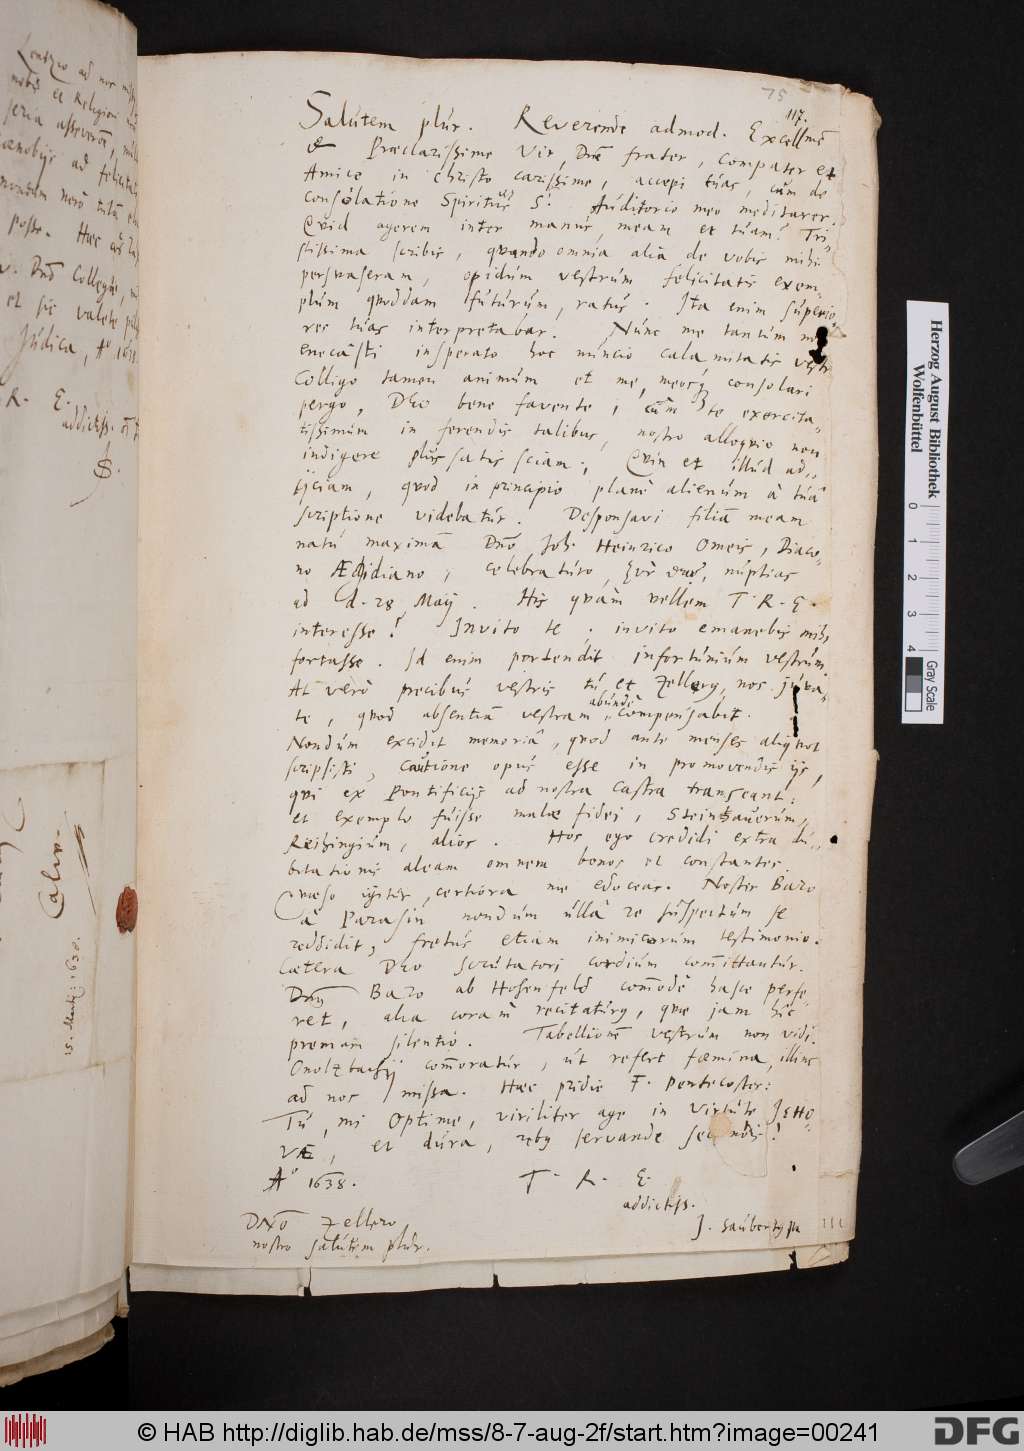 75
117.
Salutem plur. Reverende admod. Excellme
& Præclarissime Vir, Dne frater, compater et
Amice in Christo carissime, accepi tuas, cùm de
Consolatione Spiritus S. Auditorio meo meditarer.
Qvid agerem inter manus, meam et tuam? Tri-
stissima scribis, quando omnia alia de vobis mihi
persvaseram, opidum vestrum felicitatis exem-
plum quoddam futurum, ratus. Ita enim superio-
res tuas interpretabar. Nunc me tantum
enecâsti insperato hoc nuncio calamitatis vestr
Colligo tamen animum et me, meosq consolari
pergo, Deo bene favente; cùm te exercita-
tissimum in ferendis talibus, nostro alloquio non
indigere plus satis sciam. Qvin et illud ad-
ijciam, quod in principio planè alienum à tuâ
scriptione videbatur. Desponsavi filiã meam
natu maximã Dnõ Joh. Heinrico Omeis, Diaco-
no Ægidiano, celebraturo, nuptias
ad d. 28 Maij. His quàm vellem T. R. E.
interesse! Invito te. invito emanebis mihi
fortasse. Id enim portendit infortunium vestrum
At verò precibus vestris tu et Zellerg, nos juva-
te, quod absentiã vestram abundè compensabit.
Nondum excidit memoriâ, quod ante menses aliquot
scripsisti, cautione opus esse in promovendis ijs,
qui ex Pontificijs ad nostra castra transeant:
et exemplo fuisse malæ fidei, Steinhauerum,
Reihingium, alios. Hos ego credidi extra du-
bitationis aleam omnem bonos et constantes.
Quæso igitur, certiora me edoceas. Noster Bazo
à Parasin nondum ullâ re suspectum se
reddidit, fretus etiam inimicorum testimonio.
Cætera Deo scrutatori cordium com̃ittantur.
Dng Bazo ab Hosenfeld com̃odè hasce perfe-
ret, alia coràm recitaturg, quæ jam hîc
premam silentio. Tabellionẽ vestrum non vidi.
Onoltzbachij com̃oratur, ut refert fæmina, illinc
ad nos missa. Hæc pridie F. Pentecostes:
Tu, mi Optime, viriliter age in virtute JEHO-
VÆ, et dura, rebg servande secundis!
Aº 1638.
T. R. E.
addictiss.
J. Saubertg
Dnõ Zellero
nostro salutem plur.
111
nobis et Religioni
seria asseverã,
ad felicita
posse. Hæc
Dnõ Collegæ,
et sic valete
Judica, Aº 163
R. E.
addictiss.
15. Martij 1638.
Herzog August Bibliothek
Wolfenbüttel
0 1 2 3 4
Gray Scale
© HAB http://diglib.hab.de/mss/8-7-aug-2f/start.htm?image=00241
DFG